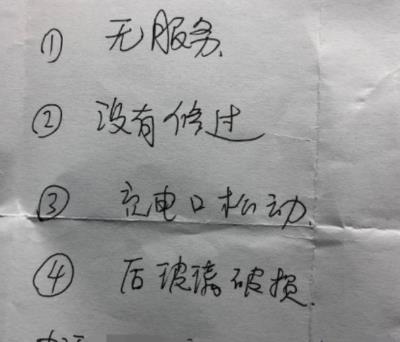 ① 无服务.
② 没有修过
③ 充电口松动.
④ 后玻璃破损.